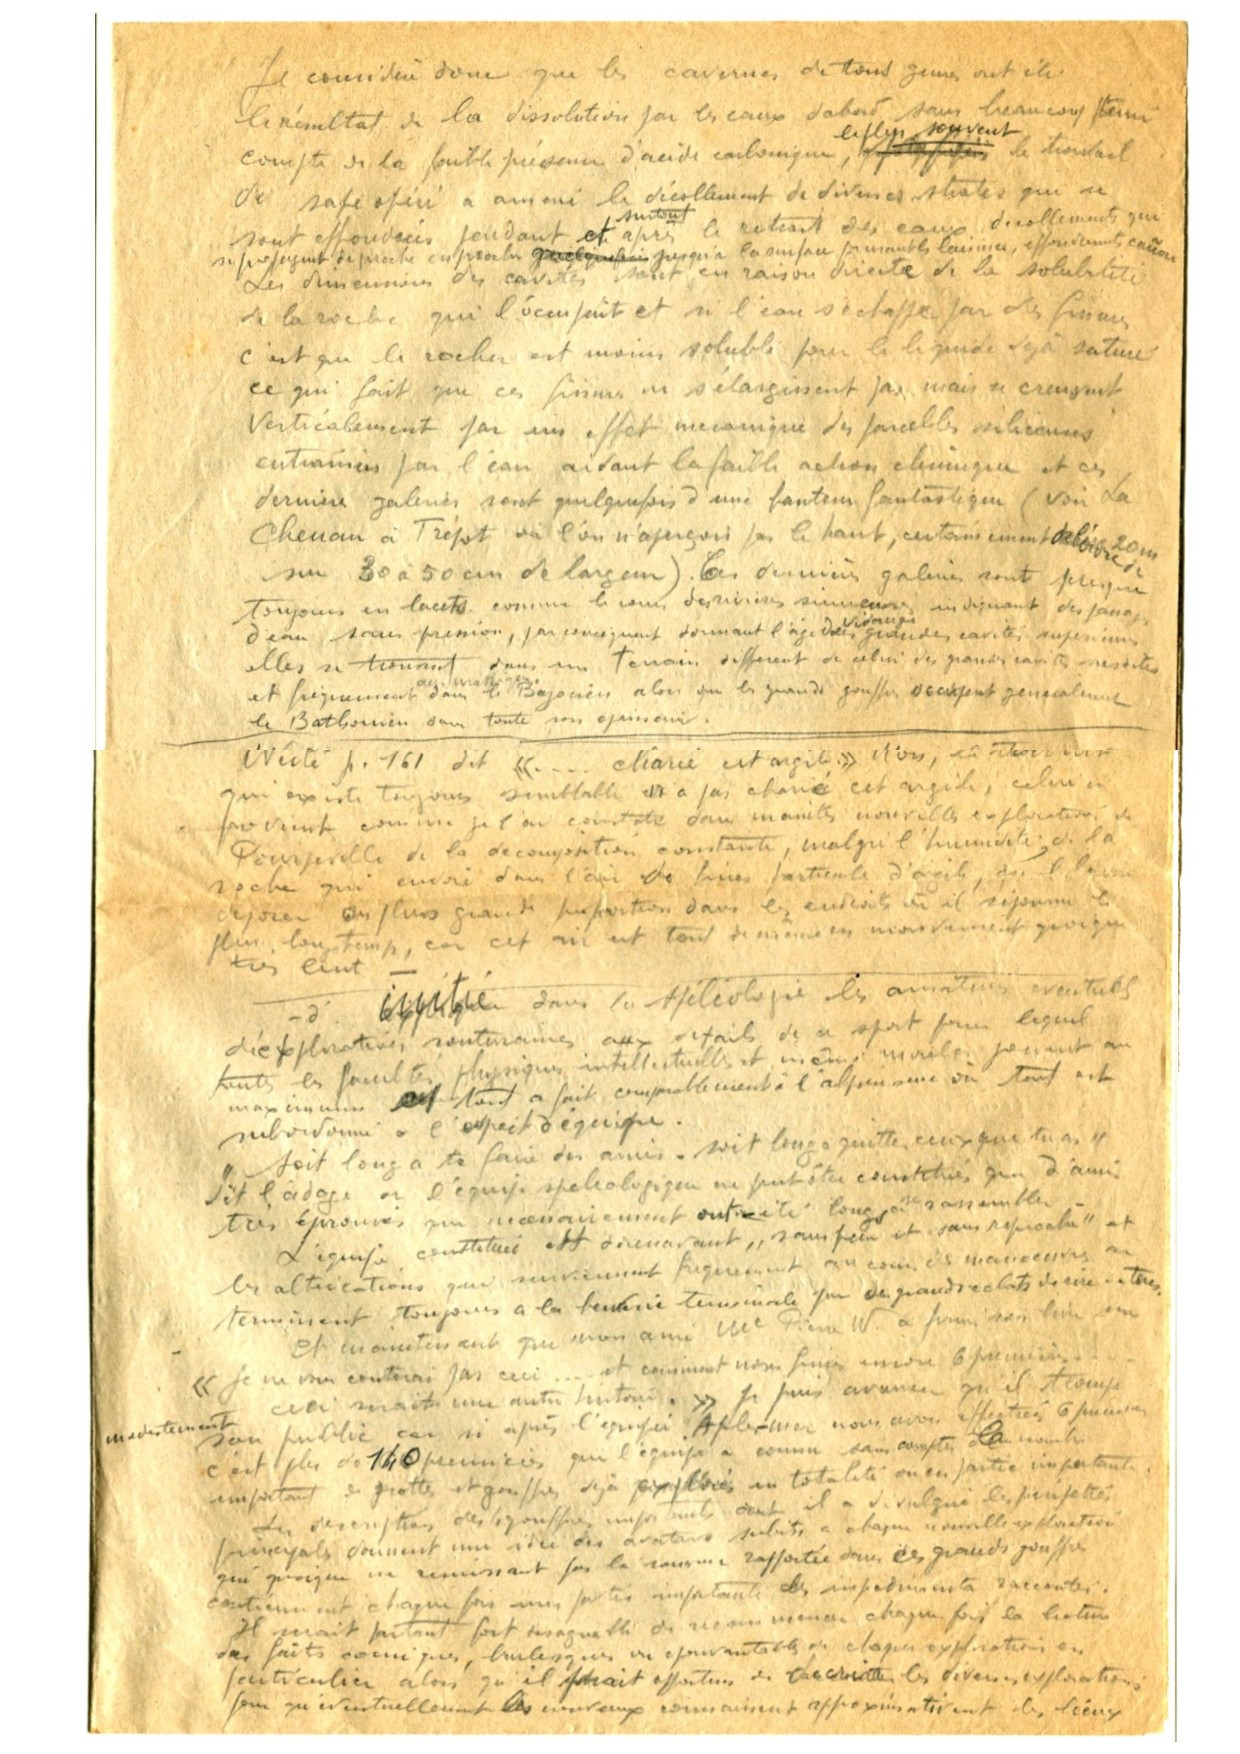 Je considère donc que les cavernes de tous genres ont été
le résultat de la dissolution par les eaux d'abord sans beaucoup tenir
le plus souvent
compte de la faible présence d'acide carbonique, le travail
de sape opéré a amené le décollement de diverses strates qui se
surtout
sont effondrées pendant et après le retrait des eaux, décollements qui
se propagent de proche en proche quelquefois jusqu'à la surface formant les effondrements
Les dimensions des cavités sont en raison directe de la solubilité
de la roche qui l'occupait et si l'eau s'échappe par des fissures
c'est que le rocher est moins soluble pour le liquide déjà saturé
ce qui fait que ces fissures ne s'élargissent pas mais se creusent
verticalement par un effet mécanique des parcelles siliceuses
entrainées par l'eau aidant la faible action chimique et ces
dernières galeries sont quelquefois d'une hauteur fantastique (voir La
Chenau à Trépot où l'on n'aperçoit pas le haut, certainement 20 m
sur 30 à 50 cm de largeur). Ces dernières galeries sont presque
toujours en lacets comme le cours des rivières sinueuses indiquant des passages
d'eau sans pression, par conséquent donnant l'âge des grandes cavités supérieures
elles se trouvent dans un terrain différent de celui des grandes cavités susdites
et fréquemment dans le Bajocien alors que les grands gouffres occupent généralement
le Bathonien dans toute son épaisseur.
p. 161 dit «.... charié cet argile.» Non,
qui existe toujours semblable n'a pas charié cet argile, celui ci
provient comme je l'ai constaté dans maintes nouvelles explorations de
Pourpeville de la décomposition constante, malgré l'humidité, de la
roche qui envoie dans l'air de fines particules d'argile,
déposer en plus grande proportion dans les endroits où il séjourne le
plus longtemps, car cet air est tout de même en mouvement quoique
très lent —
- d' initié dans la spéléologie les amateurs éventuels
d'explorations souterraines aux détails de ce sport pour lequel
toutes les facultés physiques intellectuelles et même morales jouent au
maximum et tout a fait comparablement à l'alpinisme où tout est
subordonné a l'esprit d'équipe.
" Soit long a te faire des amis. soit long a quitter ceux que tu as "
dit l'adage or l'équipe spéléologique ne peut être constituée que d'amis
très éprouvés qui nécessairement ont été longs a se rassembler -
L'équipe constituée est dorénavant " sans peur et sans reproche " et
les altercations qui surviennent fréquemment au cours des manœuvres se
terminent toujours a la beuverie terminale par de grands éclats de rire
Et maintenant que mon ami Me Pierre W. a
« Je ne vous conterai pas ceci .... et comment nous fimes encore 6 premières...
ceci serait une autre histoire. » Je puis avancer qu'il trompe
modestement
son public car si après l'équipée nous avons effectués 6 premières
c'est plus de 140 premières que l'équipe a connu sans compter le nombre
important de grottes et gouffres déjà explorés en totalité ou en partie importante.
Les descriptions des gouffres importants dont il a divulgué les péripéties
principales donnent une idée des avatars subits a chaque nouvelle exploration
qui quoique ne réunissant pas la somme rapportée dans ces grands gouffres
contiennent chaque fois une partie importante des impedimenta racontés.
Il serait partant fort désagréable de recommencer chaque fois la lecture
des faits comiques, burlesques ou épouvantables de chaque exploration en
particulier alors qu'il serait opportun de décrire les diverses explorations
pour qu'éventuellement les nouveaux connaissent approximativement des lieux